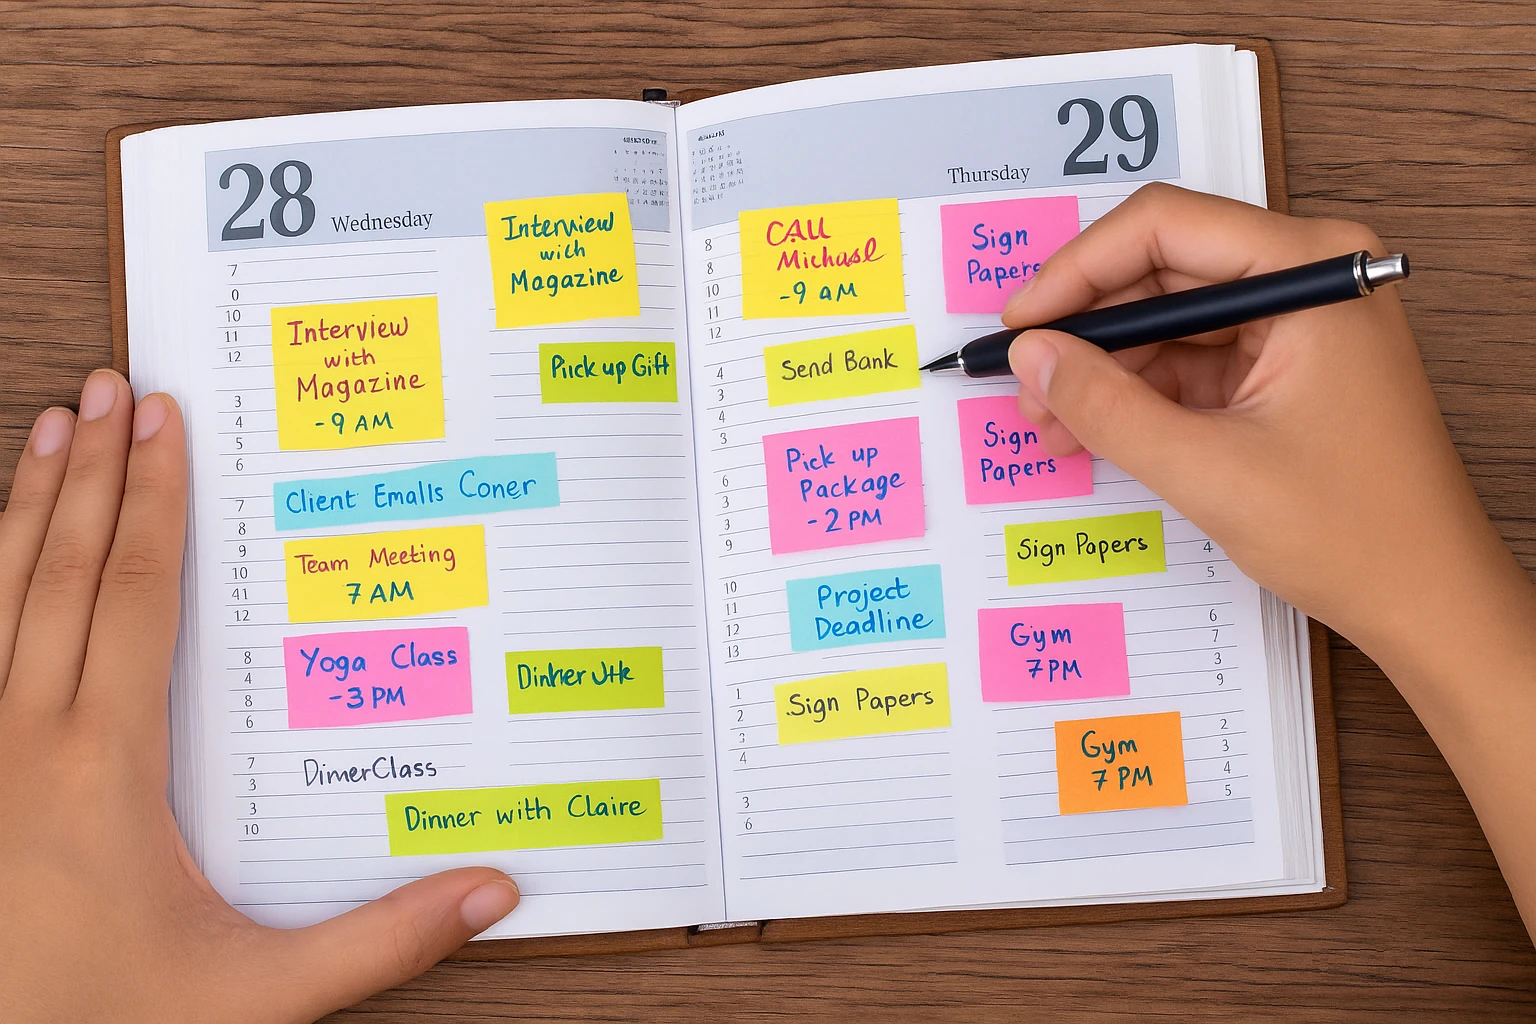 28 Wednesday
7
0
10
11
12
3
4
5
6
7
8
9
10
41
12
8
4
8
6
7
3
3
10
Interview
with
Magazine
Interview
with
Magazine
-9 AM
Pick up Gift
Client Emalls Coner
Team Meeting
7 AM
Yoga Class
-3 PM
Dinher
DimerClass
Dinner with Claire
Thursday 29
8
8
10
11
12
4
3
4
3
6
3
3
9
10
11
12
13
1
2
3
4
3
6
CAll
Michael
-9 AM
Send Bank
Pick up
Package
-2 PM
Project
Deadline
Sign Papers
Sign
Papers
Sign
Papers
Sign Papers
Gym
7PM
Gym
7 PM
4
5
6
7
3
9
2
3
4
5